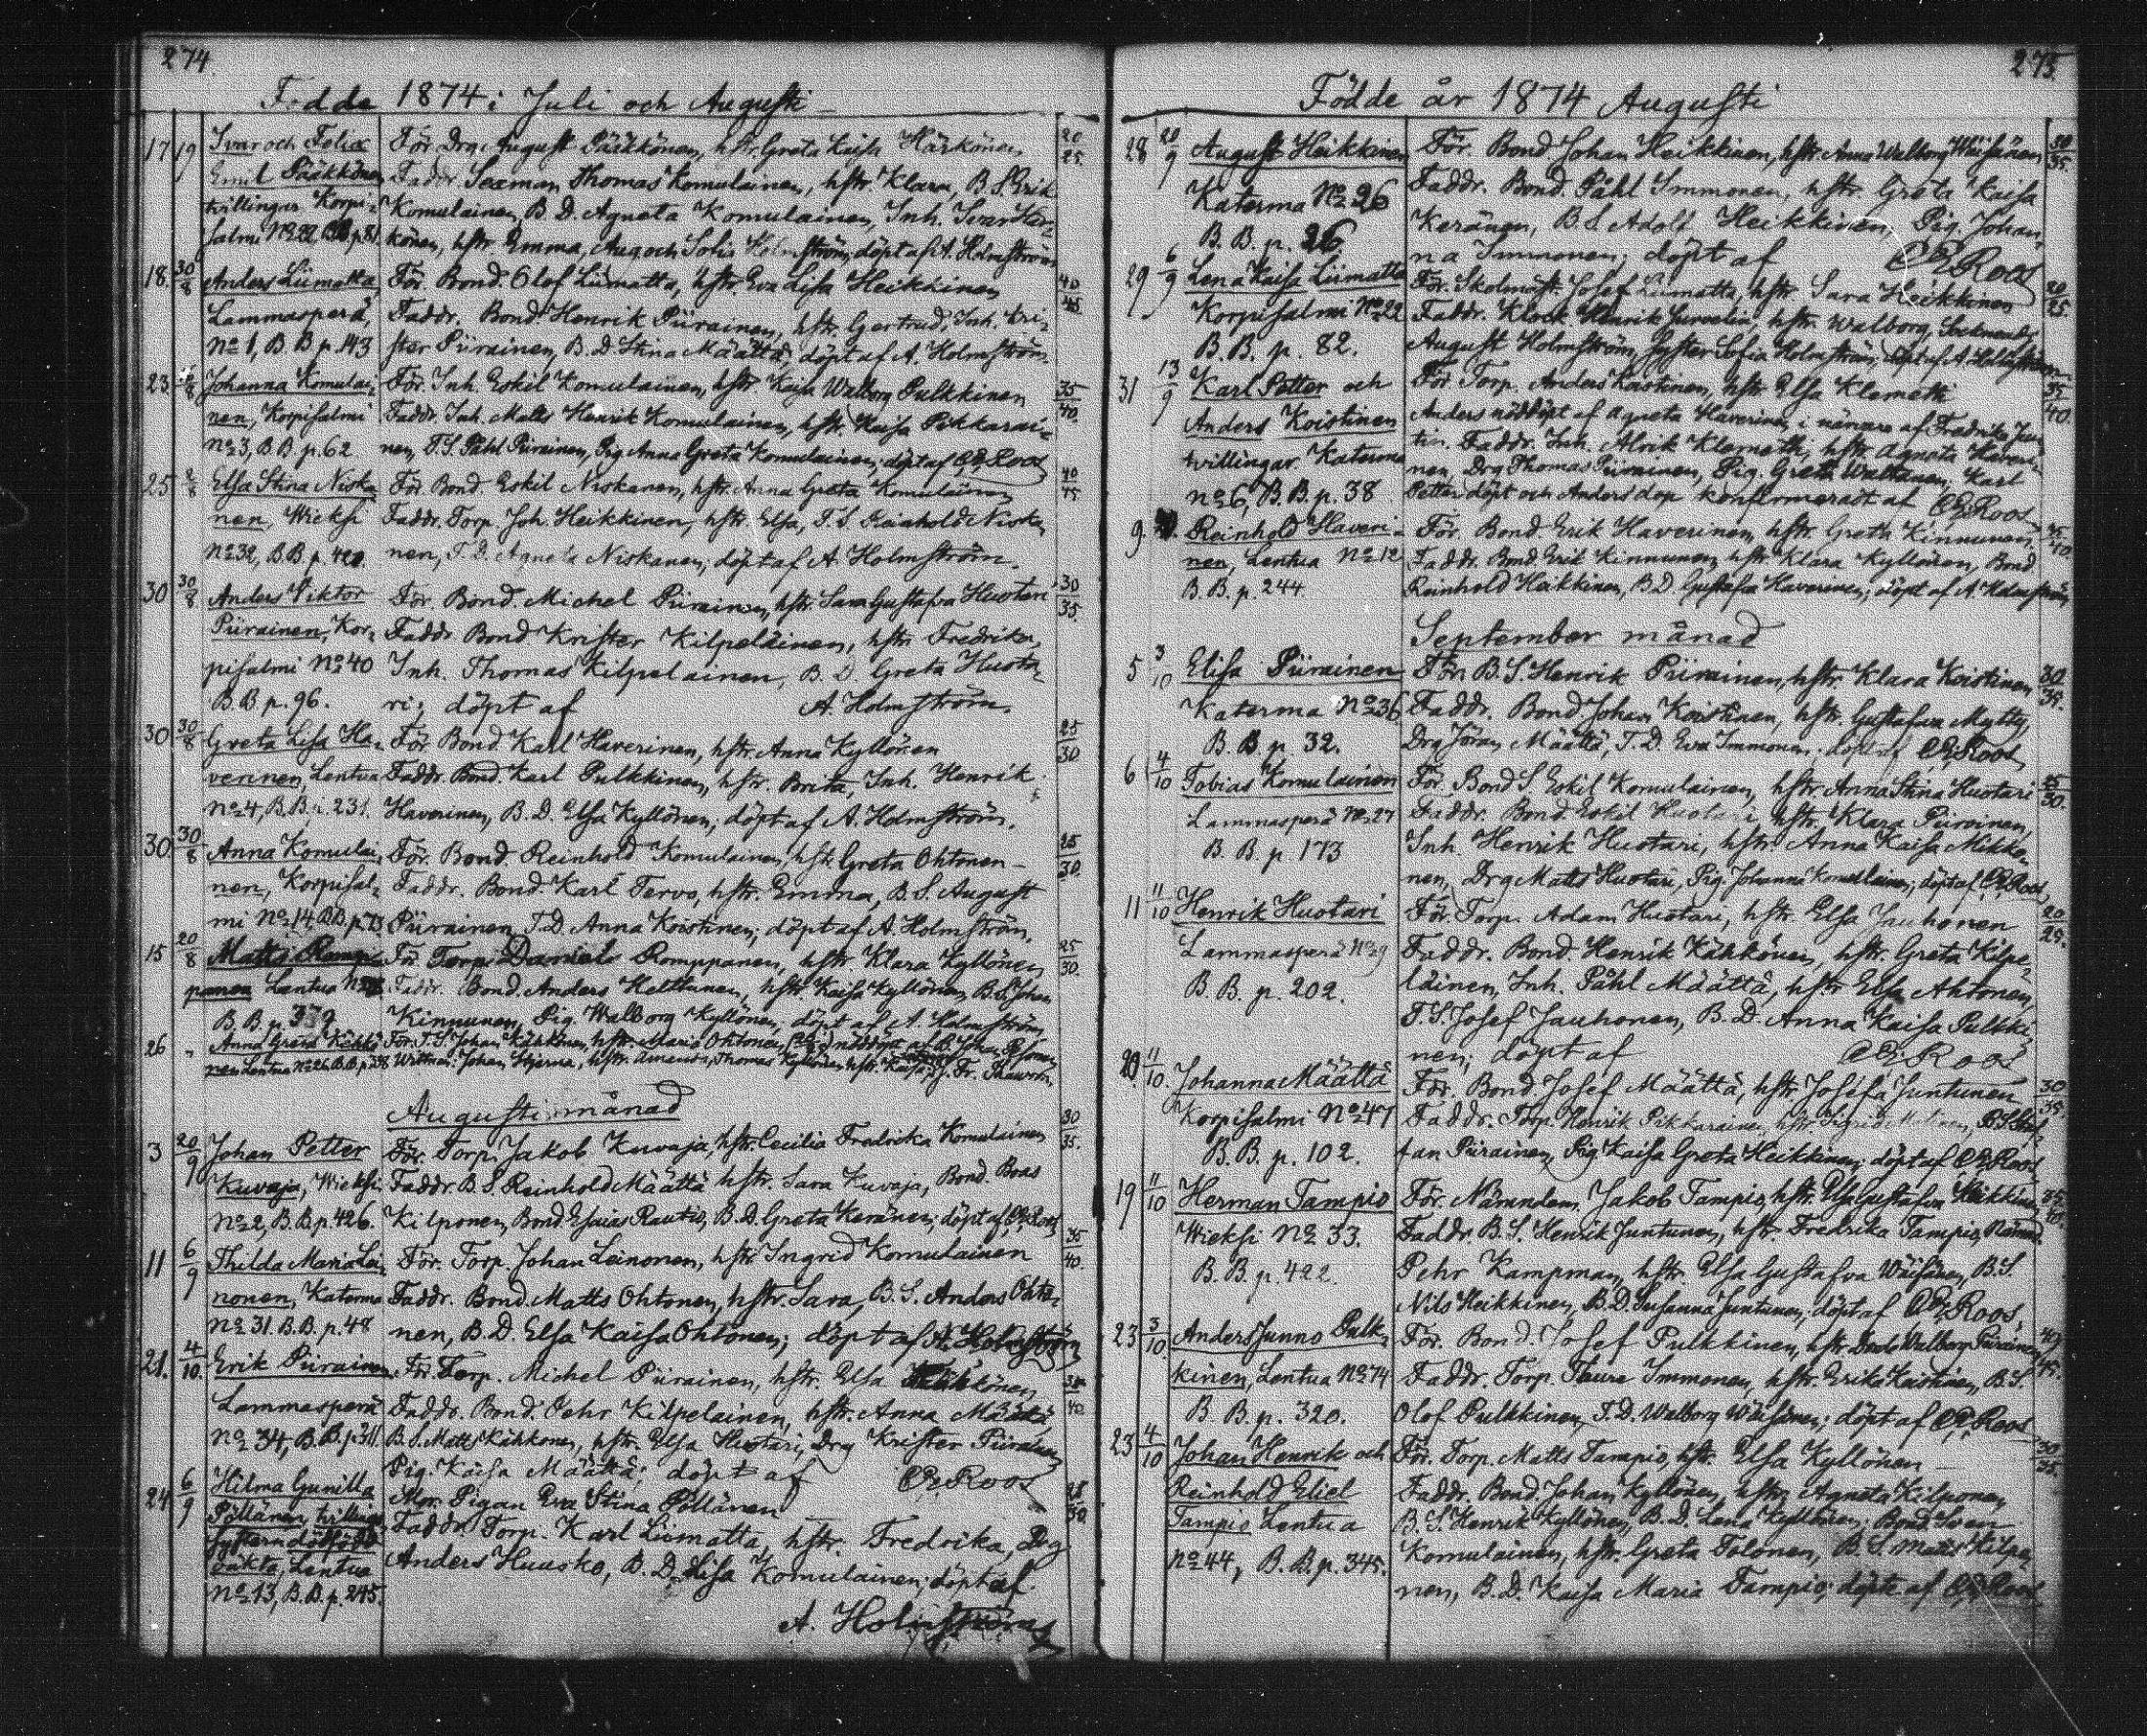 274
Födde 1874 i Juli och Augusti
17 19 Ivar och Felix För. Drg August Pääkkönen, hstr. Greta Kaisa Härkönen 20/25.
Emil Pääkkönen Faddr. Sexman Thomas Komulainen, hstr. Klara, B.S. Erik
tvillingar Korpi- Komulainen, B.D. Agneta Komulainen, Inh. Ivar Här-
salmi No 22 B.B. p. 81. könen, hstr Emma, Aug. och Sofia Holmström; döpt af A. Holmström
18. 30/8 Anders Liimatta För. Bond. Olof Liimatta, hstr Eva Lisa Heikkinen 40/45.
Lammasperä, Faddr. Bond. Henrik Piirainen, hstr. Gertrud, Inh. Kri-
No 1, B.B. p. 143 ster Piirainen, B.D. Stina Määttä; döpt af A. Holmström.
23 /8 Johanna Komulai- För. Inh. Eskil Komulainen, hstr Kaisa Walborg Pulkkinen 35/40.
nen, Korpisalmi Faddr. Inh. Matts Henrik Komulainen, hstr. Kaisa Pikkarai-
No 3, B.B. p. 62 nen, T.S. Påhl Piirainen, Pig. Anna Greta Komulainen; döpt af Roos
25 /8 Elsa Stina Niska- För. Bond. Eskil Niskanen, hstr. Anna Greta Komulainen 40/45
nen, Wieksi Faddr. Torp. Joh. Heikkinen, hstr. Elsa, T.S. Reinhold Niska-
No 32, B.B. p. 420. nen, T.D. Agneta Niskanen; döpt af A. Holmström.
30 30/8 Anders Viktor För. Bond. Michel Piirainen, hstr. Sara Gustafva Huotari 30/35.
Piirainen, Kor- Faddr Bond Krister Kilpeläinen, hstr. Fredrika,
pisalmi No 40 Inh. Thomas Kilpelainen, B.D. Greta Huota-
B.B. p. 96. ri; döpt af A. Holmström.
30 30/8 Greta Lisa Ha- För Bond. Karl Haverinen, hstr. Anna Kyllönen 25/30
verinen, Lentua Faddr. Bond. Karl Pulkkinen, hstr. Brita, Inh. Henrik
No 4, B.B. p. 231. Haverinen, B.D. Elsa Kyllönen; döpt af A. Holmström.
30. 30/8 Anna Komulai- För. Bond. Reinhold Komulainen, hstr. Greta Ohtonen 25/30.
nen, Korpisal- Faddr. Bond. Karl Tervo, hstr. Emma, B.S. August
mi No 14, B.B. p. 73 Piirainen, T.D. Anna Koistinen; döpt af A. Holmström.
15 20/8 Matts Romp- För Torp. Daniel Romppanen, hstr. Klara Kyllönen 25/30.
panen Lentua No Faddr. Bond. Anders Kelttunen, hstr. Kaisa Kyllönen, B.S. Johan
B.B. p. 339 Kinnunen, Pig. Walborg Kyllönen, döpt af A. Holmström
26 " Anna Greta Kähkö- För. T.S. Johan Kähkönen, hstr. Maria Ohtonen, nöddöpt af Johan
nen Lentua No 26 B.B. p. 28 Wittman. Johan Stjerna, hstr. Amanda, Thomas Kyllönen hstr. Kaisa
Augusti månad
3 20/9 Johan Petter För. Torp. Jakob Kuvaja, hstr. Cecilia Fredrika Komulainen 30/35.
Kuvaja, Wieksi Faddr. B.S. Reinhold Määttä hstr. Sara Kuvaja, Bond. Boas
No 2, B.B. p. 426. Kilponen, Bond Esaias Rautio, B.D. Greta Keränen; döpt af Roos
11 6/9 Thilda Maria Lei- För. Torp. Johan Leinonen, hstr. Ingrid Komulainen 35/40.
nonen, Katerma Faddr. Bond. Matts Ohtonen, hstr. Sara, B.S. Anders Ohto-
No 31. B.B. p. 48 nen, B.D. Elsa Kaisa Ohtonen; döpt af A. Holmström
21. 4/10. Erik Piirainen För Torp. Michel Piirainen, hstr. Elsa Kähkönen
Lammasperä Faddr. Bond. Pehr Kilpelainen, hstr. Anna Määttä
No 34, B.B. p. 311. B.S. Matts Kähkonen, hstr. Elsa Huotari, Drg Krister Piirainen
Pig. Kaisa Määttä; döpt af Roos
24 6/9 Hilma Gunilla Mor. Pigan Eva Stina Pöllänen
Pöllänen, tvillings- Faddr. Torp. Karl Liimatta, hstr. Fredrika, Drg
systern dödfödd Anders Huusko, B.D. Lisa Komulainen; döpt af
oäkta, Lentua
No 13, B.B. p. 245. A. Holmström
275.
Födde år 1874 Augusti
28 20/9 August Heikkinen För. Bond Johan Heikkinen, hstr. Anna Walborg Wäisänen 30/35.
Katerma No 26 Faddr. Bond. Påhl Immonen, hstr. Greta Kaisa
B.B. p. 26 Keränen, B.S. Adolf Heikkinen, Pig. Johan-
na Immonen; döpt af Roos
29 6/9 Lena Kaisa Liimatta För. Skolmäst. Josef Liimatta, hstr. Sara Heikkinen 20/25.
Korpisalmi No 22 Faddr. Klock. Henrik hstr. Walborg,
B.B. p. 82. August Holmström, Syster Sofia Holmström, döpt af A. Holmström
31 13/9 Karl Petter och För Torp. Anders Koistinen, hstr Elsa Klemetti 35/40.
Anders Koistinen Anders nöddöpt af Agneta Haverinen i närvaro af Fredrika Jun-
tvillingar Katerma tin. Faddr. Inh. Alrik Klemetti, hstr. Agneta Haveri-
No 6, B.B. p. 38 nen, Drg Thomas Piirainen, Pig. Greta Waltanen; Karl
Petter döpt och Anders dop konfirmeradt af Roos
9. Reinhold Haveri- För. Bond. Erik Haverinen, hstr. Greta Kinnunen,
nen, Lentua No 12 Faddr. Bond. Erik Kinnunen, hstr. Klara Kyllönen, Bond
B.B. p. 244. Reinhold Heikkinen, B.D. Gustafva Haverinen; döpt af A. Holmström
September månad
5 3/10 Elisa Piirainen För. B.S. Henrik Piirainen, hstr. Klara Koistinen 30/35.
Katerma No 36 Faddr. Bond. Johan Koistinen, hstr. Gustafva Mytty,
B.B. p. 32. Drg Jöran Määttä, T.D. Eva Immonen; döpt af Roos
6 4/10 Tobias Komulainen För. Bond S. Eskil Komulainen, hstr. Anna Stina Huotari 25/30.
Lammasperä No 27 Faddr. Bond. Eskil Huotari, hstr. Klara Piirainen,
B.B. p. 173 Inh. Henrik Huotari, hstr Anna Kaisa Mikko-
nen, Drg Matts Huotari, Pig. Johanna Komulainen; döpt af Roos
11 11/10 Henrik Huotari För. Torp. Adam Huotari, hstr. Elsa Jauhonen 20/25.
Lammasperä No 9 Faddr. Bond. Henrik Kähkönen, hstr. Greta Kilpe-
B.B. p. 202. läinen, Inh. Påhl Määttä, hstr Elsa Ahtonen,
T.S. Josef Jauhonen, B.D. Anna Kaisa Pulkki-
nen; döpt af Roos
11/10. Johanna Määttä För. Bond. Josef Määttä, hstr. Josefa Juntunen 30/35.
Korpisalmi No 47 Faddr. Torp. Henrik Pikkarainen, hstr. Sigrid B.S. Stef-
B.B. p. 102. fan Piirainen, Pig. Kaisa Greta Heikkinen; döpt af Roos
19 11/10 Herman Tampio För. Nämndem. Jakob Tampio, hstr. Elsa Gustafva Heikkinen 35/40.
Wieksi No 33. Faddr. B.S. Henrik Juntunen, hstr. Fredrika Tampio, Nämnd.
B.B. p. 422. Pehr Kampman, hstr. Elsa Gustafva Wäisänen, B.S.
Nils Heikkinen, B.D. Susanna Juntunen; döpt af Roos.
23 3/10. Anders Junno Pulk- För. Bond. Josef Pulkkinen, hstr. Walborg Piirainen 40/45.
kinen, Lentua No 74 Faddr. Torp. Thure Immonen, hstr. Erika Koistinen, B.S.
B.B. p. 320. Olof Pulkkinen, T.D. Walborg Wäisänen; döpt af Roos
23 4/10 Johan Henrik och För. Torp. Matts Tampio, hstr. Elsa Kyllönen 30/35.
Reinhold Eliel Faddr. Bond. Johan Kyllönen, hstr. Agneta Kilponen
Tampio Lentua B.S. Henrik Kyllönen, B.D. Lena Kyllönen; Bond. Sven
No 44, B.B. p. 345. Komulainen, hstr. Greta Tolonen, B.S. Matts Kilpo-
nen, B.D. Kaisa Maria Tampio; döpte af Roos